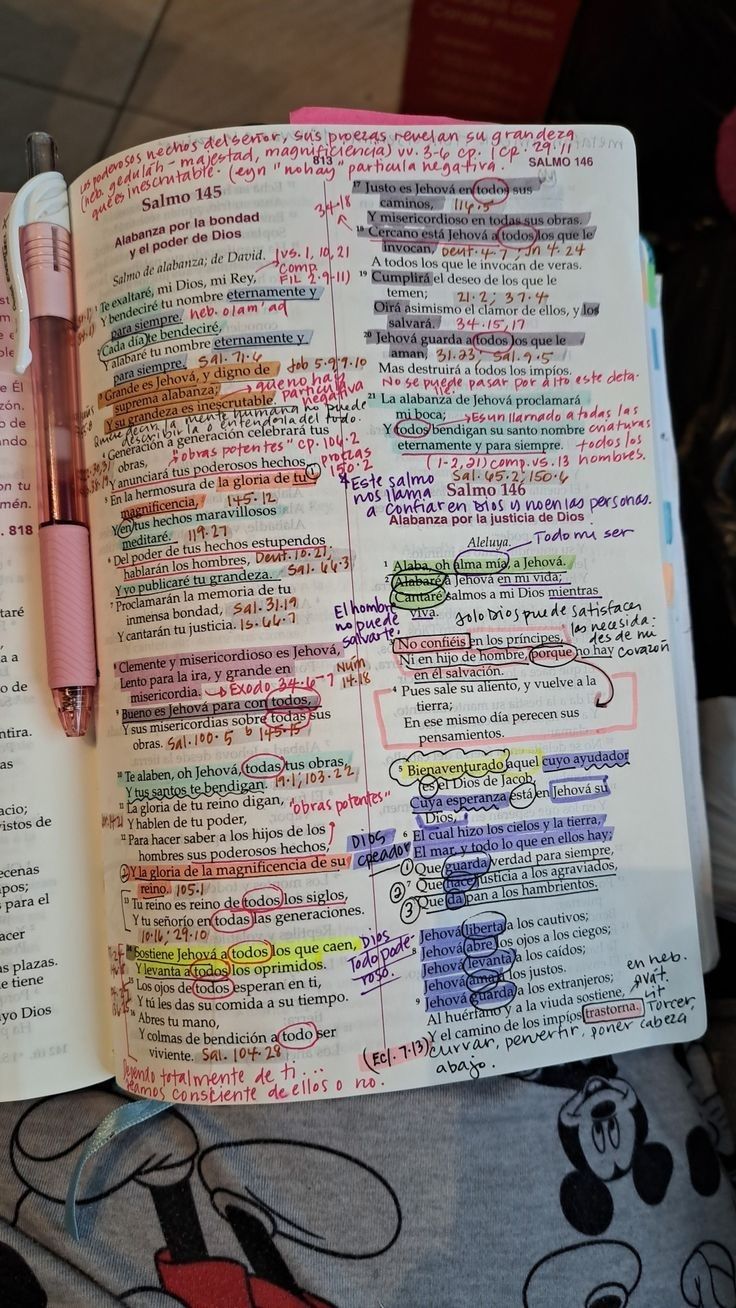 Los poderosos hechos del señor, sus proezas revelan su grandeza
(heb. gedulah - majestad, magnificiencia) vv. 3-6 cp. 1 Cp. 29.11
que es inescrutable. (eyn "no hay" particula negativa.
813
Salmo 145
Alabanza por la bondad
y el poder de Dios
Salmo de alabanza; de David.
(vs. 1, 10, 21
comp.
FIL 2.9-11)
1 Te exaltaré, mi Dios, mi Rey,
Y bendeciré tu nombre eternamente y
para siempre. heb. olam 'ad
2 Cada día te bendeciré,
Y alabaré tu nombre eternamente y
para siempre. Sal. 71.6
Job 5.9; 9.10
3 Grande es Jehová, y digno de
suprema alabanza; → que no hay
particula
negativa
Y su grandeza es inescrutable.
Quiere decir, la mente humana no puede
describirla o entenderla del todo.
4 Generación a generación celebrará tus
obras, "obras potentes" cp. 106.2
Y anunciará tus poderosos hechos. 1 proezas
150.2
5 En la hermosura de la gloria de tu
magnificencia, 145.12
Y en tus hechos maravillosos
meditaré. 119.27
6 Del poder de tus hechos estupendos
hablarán los hombres, Deut. 10.21;
Y yo publicaré tu grandeza. Sal. 66.3
7 Proclamarán la memoria de tu
inmensa bondad, Sal. 31.19
Y cantarán tu justicia. Is. 66.7
8 Clemente y misericordioso es Jehová,
Lento para la ira, y grande en
misericordia. → Exodo 34.6-7 Núm
14.18
9 Bueno es Jehová para con todos,
Y sus misericordias sobre todas sus
obras. Sal. 100.5 145.15
10 Te alaben, oh Jehová, todas tus obras,
Y tus santos te bendigan. 19.1; 103.22
11 La gloria de tu reino digan, "obras potentes"
Y hablen de tu poder,
12 Para hacer saber a los hijos de los
hombres sus poderosos hechos,
2 Y la gloria de la magnificencia de su
reino. 105.1
13 Tu reino es reino de todos los siglos,
Y tu señorío en todas las generaciones.
10.16; 29.10
14 Sostiene Jehová a todos los que caen,
Y levanta a todos los oprimidos.
15 Los ojos de todos esperan en ti,
Y tú les das su comida a su tiempo.
16 Abres tu mano,
Y colmas de bendición a todo ser
viviente. Sal. 104.28
Dependo totalmente de ti...
seamos consciente de ellos o no.
SALMO 146
17 Justo es Jehová en todos sus
caminos, 116.5
34.18
Y misericordioso en todas sus obras.
18 Cercano está Jehová a todos los que le
invocan, Deut. 4.7; Jn 4.24
A todos los que le invocan de veras.
19 Cumplirá el deseo de los que le
temen; 21.2; 37.4
Oirá asimismo el clamor de ellos, y los
salvará. 34.15,17
20 Jehová guarda a todos los que le
aman, 31.23; Sal. 9.5
Mas destruirá a todos los impíos.
No se puede pasar por alto este deta-
lle.
21 La alabanza de Jehová proclamará
mi boca; → Es un llamado a todas las
criaturas
Y todos bendigan su santo nombre
eternamente y para siempre. todos los
hombres.
(1-2, 21) comp. vs. 13
Sal. 65.2; 150.6
* Este salmo
nos llama
a confiar en Dios y no en las personas.
Salmo 146
Alabanza por la justicia de Dios
Aleluya.
Todo mi ser
1 Alaba, oh alma mía, a Jehová.
2 Alabaré a Jehová en mi vida;
Cantaré salmos a mi Dios mientras
viva.
solo Dios puede satisfacer
las necesida-
des de mi
corazón
El hombre
no puede
salvarte.
3 No confiéis en los príncipes,
Ni en hijo de hombre, porque no hay
en él salvación.
4 Pues sale su aliento, y vuelve a la
tierra;
En ese mismo día perecen sus
pensamientos.
5 Bienaventurado aquel cuyo ayudador
es el Dios de Jacob,
Cuya esperanza está en Jehová su
Dios,
6 El cual hizo los cielos y la tierra,
El mar, y todo lo que en ellos hay;
DIOS
creador
1 Que guarda verdad para siempre,
2 7 Que hace justicia a los agraviados,
3 Que da pan a los hambrientos.
Dios
Todo pode-
roso.
Jehová liberta a los cautivos;
8 Jehová abre los ojos a los ciegos;
Jehová levanta a los caídos;
Jehová ama a los justos.
9 Jehová guarda a los extranjeros;
Al huérfano y a la viuda sostiene,
Y el camino de los impíos trastorna.
en heb.
avát.
Torcer,
curvar, pervertir, poner cabeza
abajo.
(Ecl. 7.13)
El
zón.
ndo
mén.
. 818
taré
a a
o de
ntira.
as
acio;
istos de
ecenas
pos;
s para el
acer
s plazas.
e tiene
uyo Dios